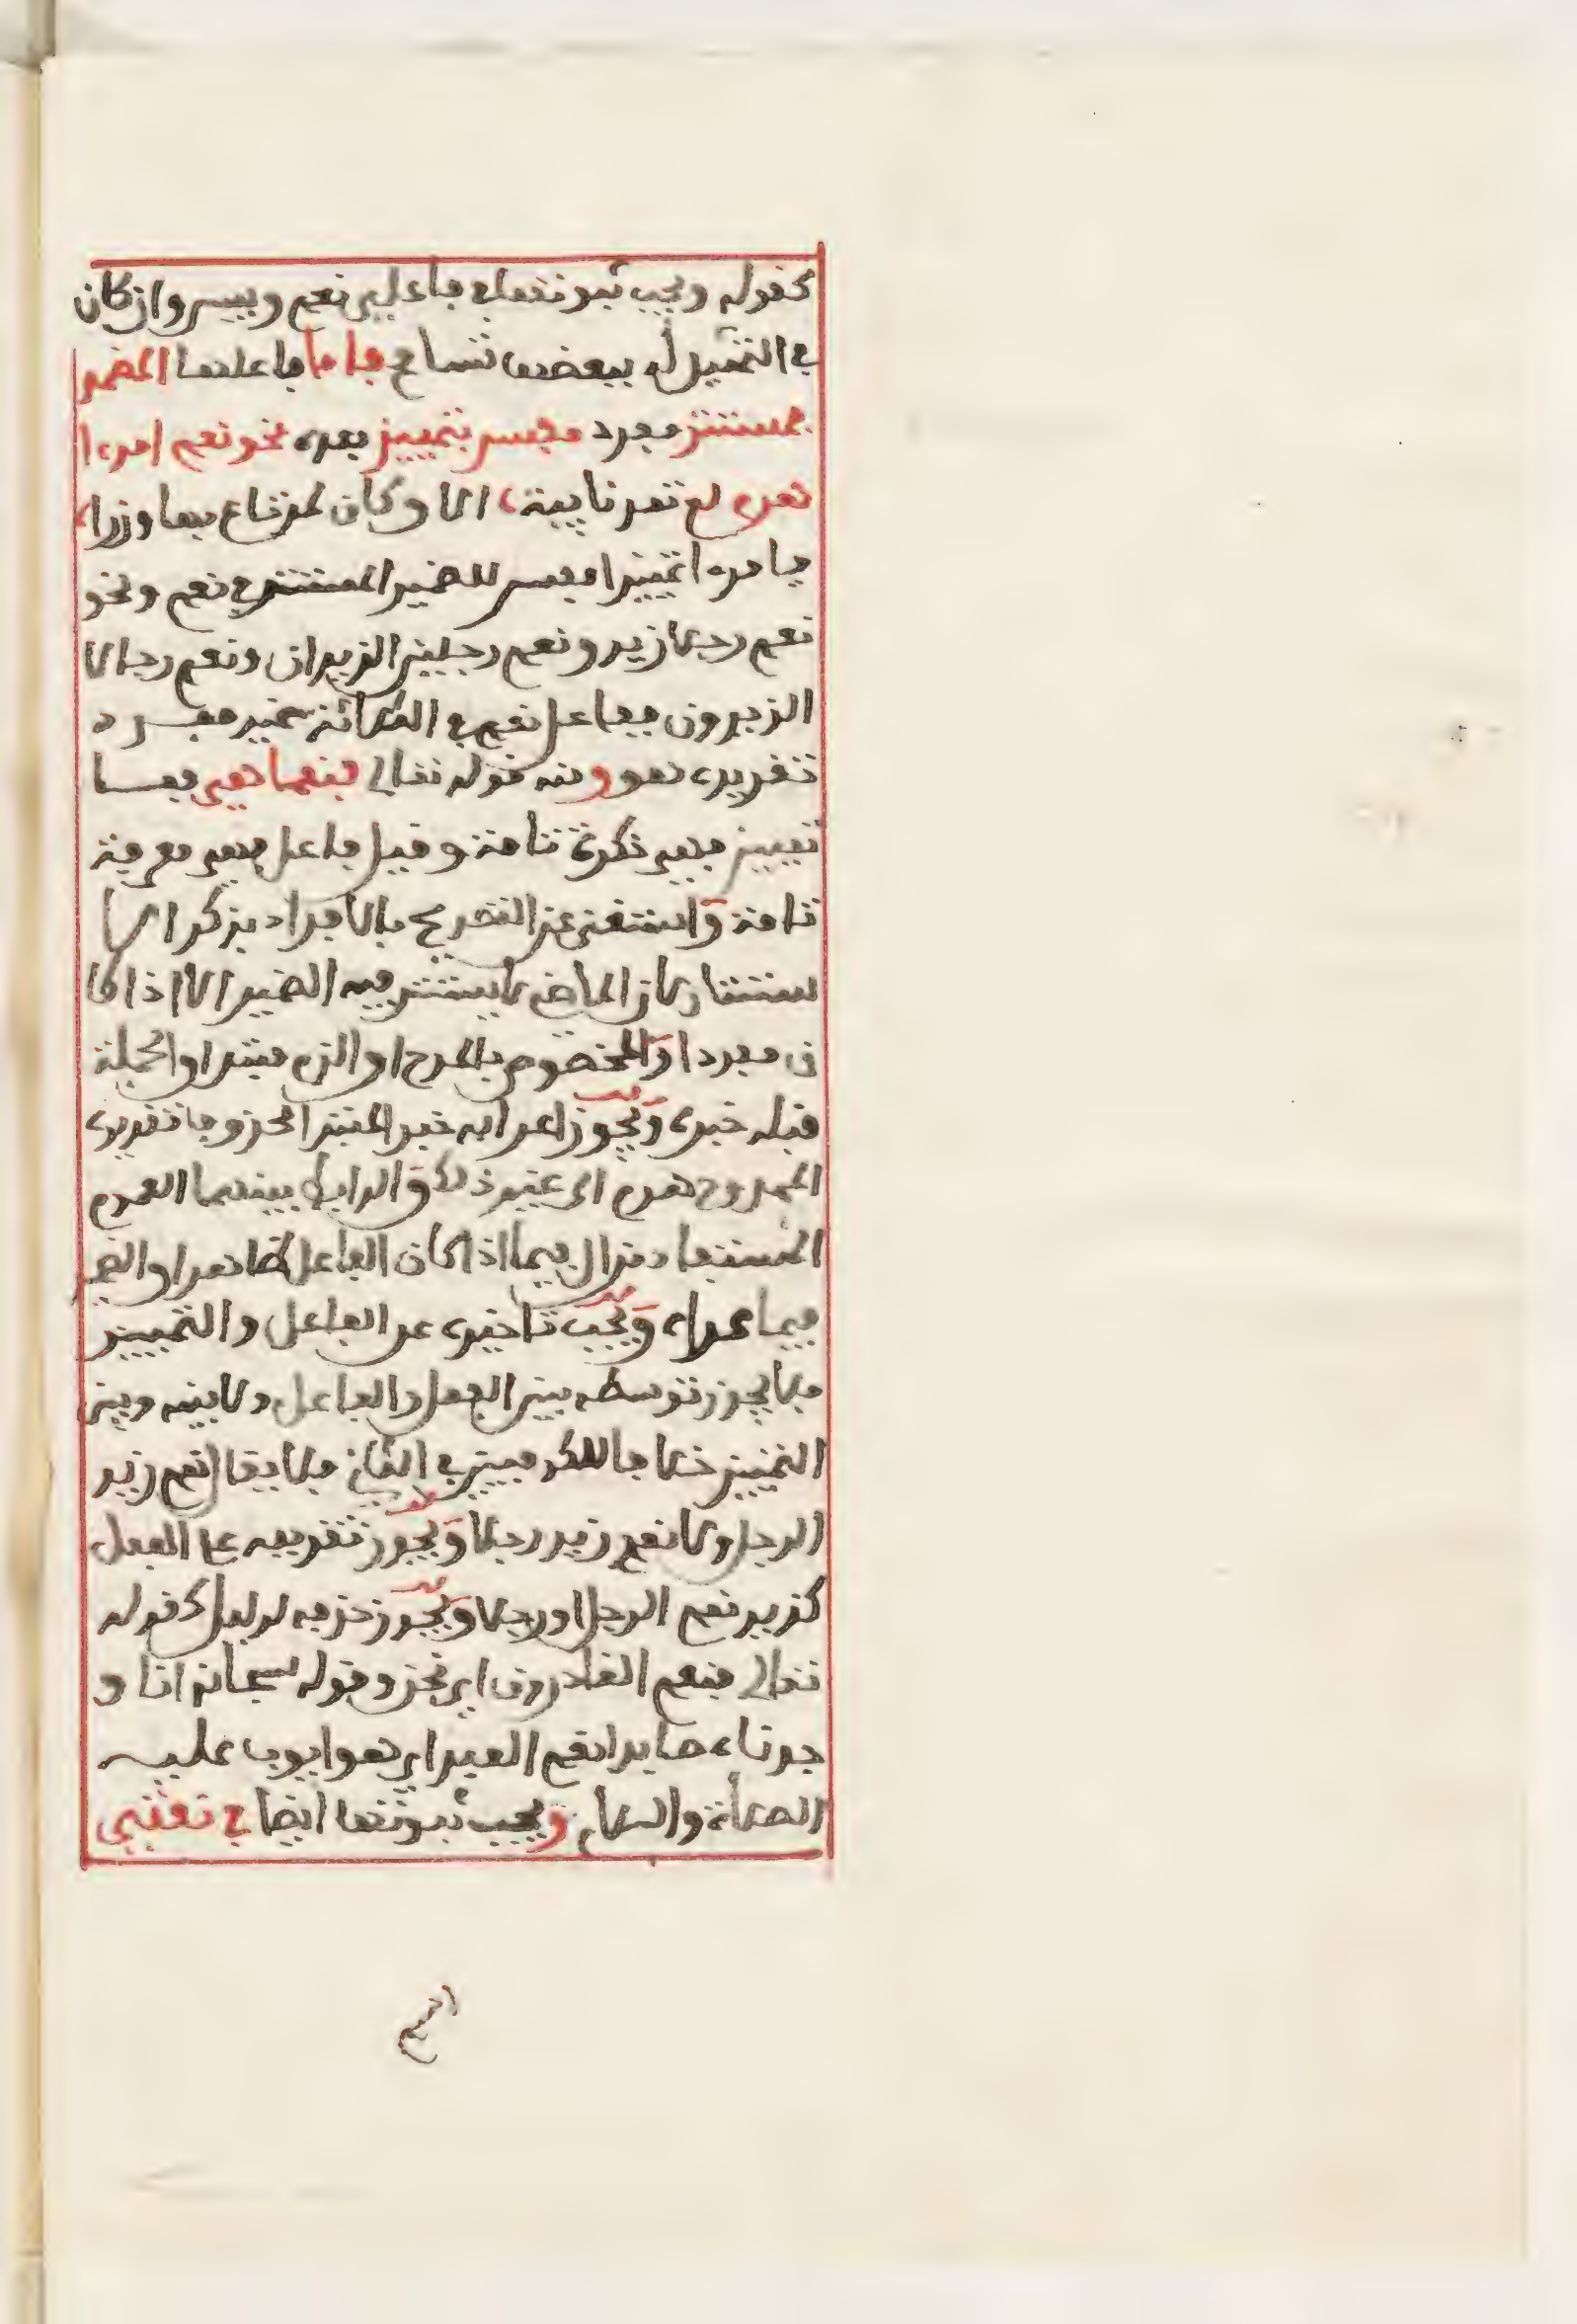 كقوله ويجب ثبوتها في فاعلي نعم وبيس وان كان
في التمثيل له ببعضها تسامح فاما فاعلها المضمر
مستتر مفرد مفسر بتمييز بعده نحو نعم امرءا
هرم لم تعر نايبة، الا وكان لمرتاع بها وزرا،
فامرءا تمييزا مفسر للضمير المستتر في نعم ونحو
نعم رجلا زيد ونعم رجلين الزيدان ونعم رجالا
الزيدون ففاعل نعم في الثلاثة ضمير مفرد
تقديره هو ومنه قوله تعالى فنعما هي فما
تمييز فهي نكرة تامة وقيل فاعل فهي معرفة
تامة واستغنى عن التصريح بالافراد بذكر الا
ستتار لان الماضي لا يستتر فيه الضمير الا اذا كا
ن مفردا والمخصوص بالمدح او الذم مبتدا والجملة
قبله خبره ويجوز اعرابه خبر المبتدا محذوفا تقديره
الممدوح هرم الى غير ذلك والرابط بينهما العموم
المستفاد من ال فيما اذا كان الفاعل ظاهرا والضمير
فيما عداه ويجب تاخيره عن الفاعل والتمييز
فلا يجوز توسطه بين الفعل والفاعل ولا بينه وبين
التمييز خلافا للكوفيين في الثاني فلا يقال نعم زيد
الرجل ولا نعم زيد رجلا ويجوز تقديمه على الفعل
كزيد نعم الرجل او رجلا ويجوز حذفه لدليل كقوله
تعالى فنعم القادرون اي نحن وقوله سبحانه انا و
جدناه صابرا نعم العبد اي هو ايوب عليه
الصلاة والسلام ويجب ثبوتها ايضا في